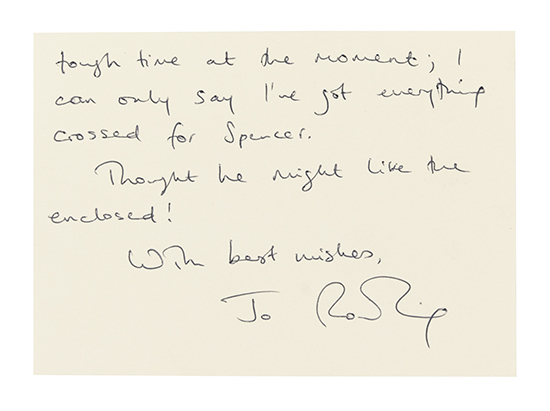 tough time at the moment; I
can only say I've got everything
crossed for Spencer.
Thought he might like the
enclosed!
With best wishes,
Jo Rowling